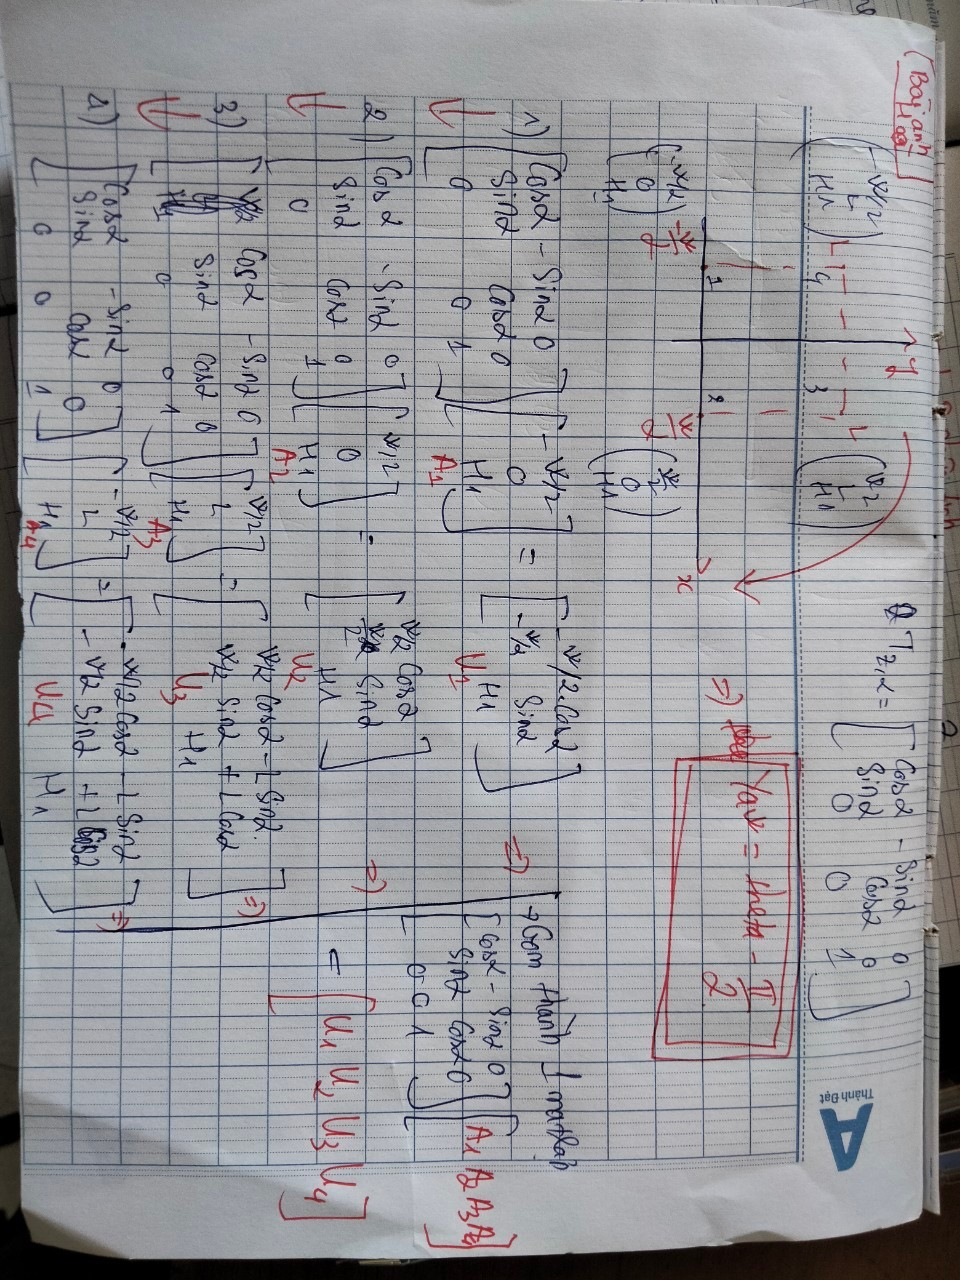 Bài
(-W/2
L
H1)
L
4
3
L
(W/2
L
H1)
y
T z,α = [cosα -sinα 0
sinα cosα 0
0 0 1]
(-W/2
0
H1)
-W/2
1
2
W/2
(W/2
0
H1)
x
=> Yaw = theta - π/2
1) [cosα -sinα 0
sinα cosα 0
0 0 1] [-W/2
0
H1] = [-W/2.cosα
-W/2 sinα
H1] =>
A1
U1
2) [cosα -sinα 0
sinα cosα 0
0 1] [W/2
0
H1] = [W/2 cosα
W/2 sinα
H1] =>
A2
U2
3) [cosα -sinα 0
sinα cosα 0
0 0 1] [W/2
L
H1] = [W/2 cosα - L sinα
W/2 sinα + L cosα
H1] =>
A3
U3
4) [cosα -sinα 0
sinα cosα 0
0 0 1] [-W/2
L
H1] = [-W/2 cosα - L sinα
-W/2 sinα + L cosα
H1] =>
A4
U4
→ Gom thành 1
[cosα -sinα 0
sinα cosα 0
0 0 1] [A1 A2 A3 A4]
= [U1 U2 U3 U4]
Thành Đạt